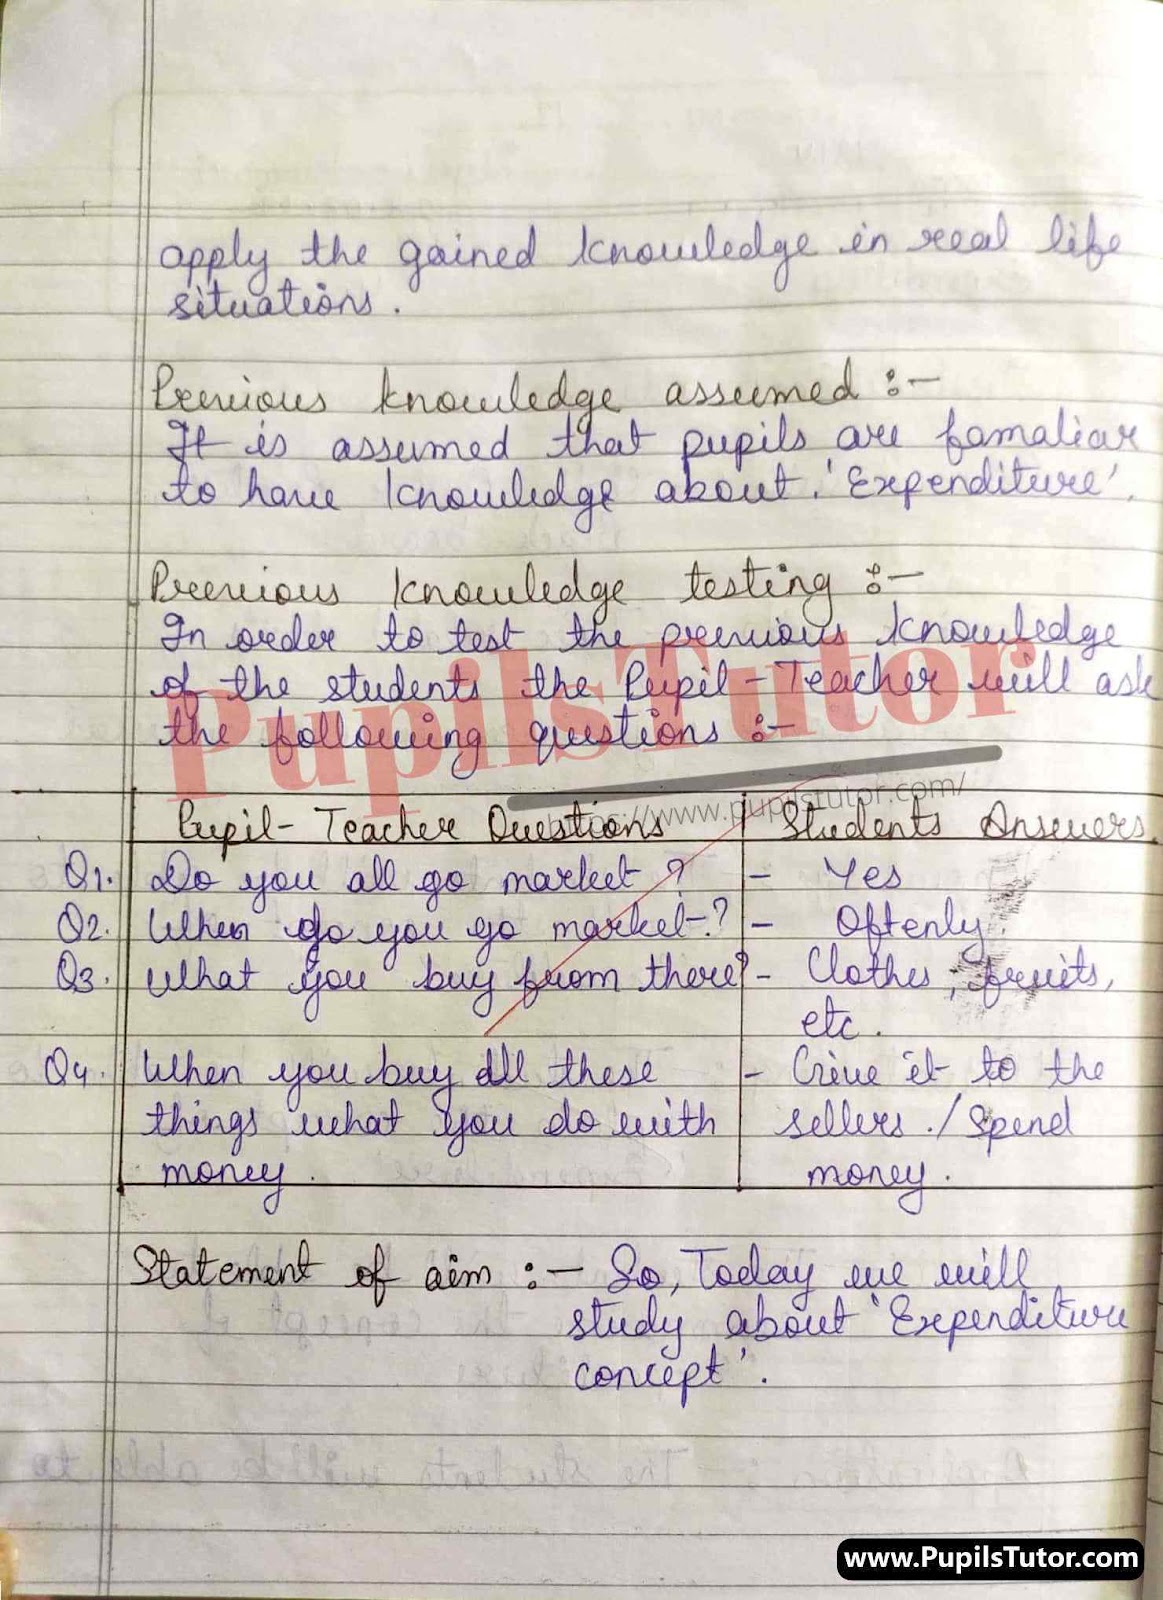 apply the gained knowledge in real life
situations.
Previous knowledge assumed :-
It is assumed that pupils are familiar
to have knowledge about 'Expenditure'.
Previous knowledge testing :-
In order to test the previous knowledge
of the students the Pupil-Teacher will ask
the following questions :-
PupilsTutor
https://www.pupilstutor.com/
Pupil-Teacher Questions Students Answers
Q1. Do you all go market ? - Yes
Q2. When do you go market ? - Oftenly.
Q3. What you buy from there? - Clothes, fruits,
etc.
Q4. When you buy all these - Give it to the
things what you do with sellers./Spend
money. money.
Statement of aim :- So, Today we will
study about 'Expenditure
concept'.
www.PupilsTutor.com